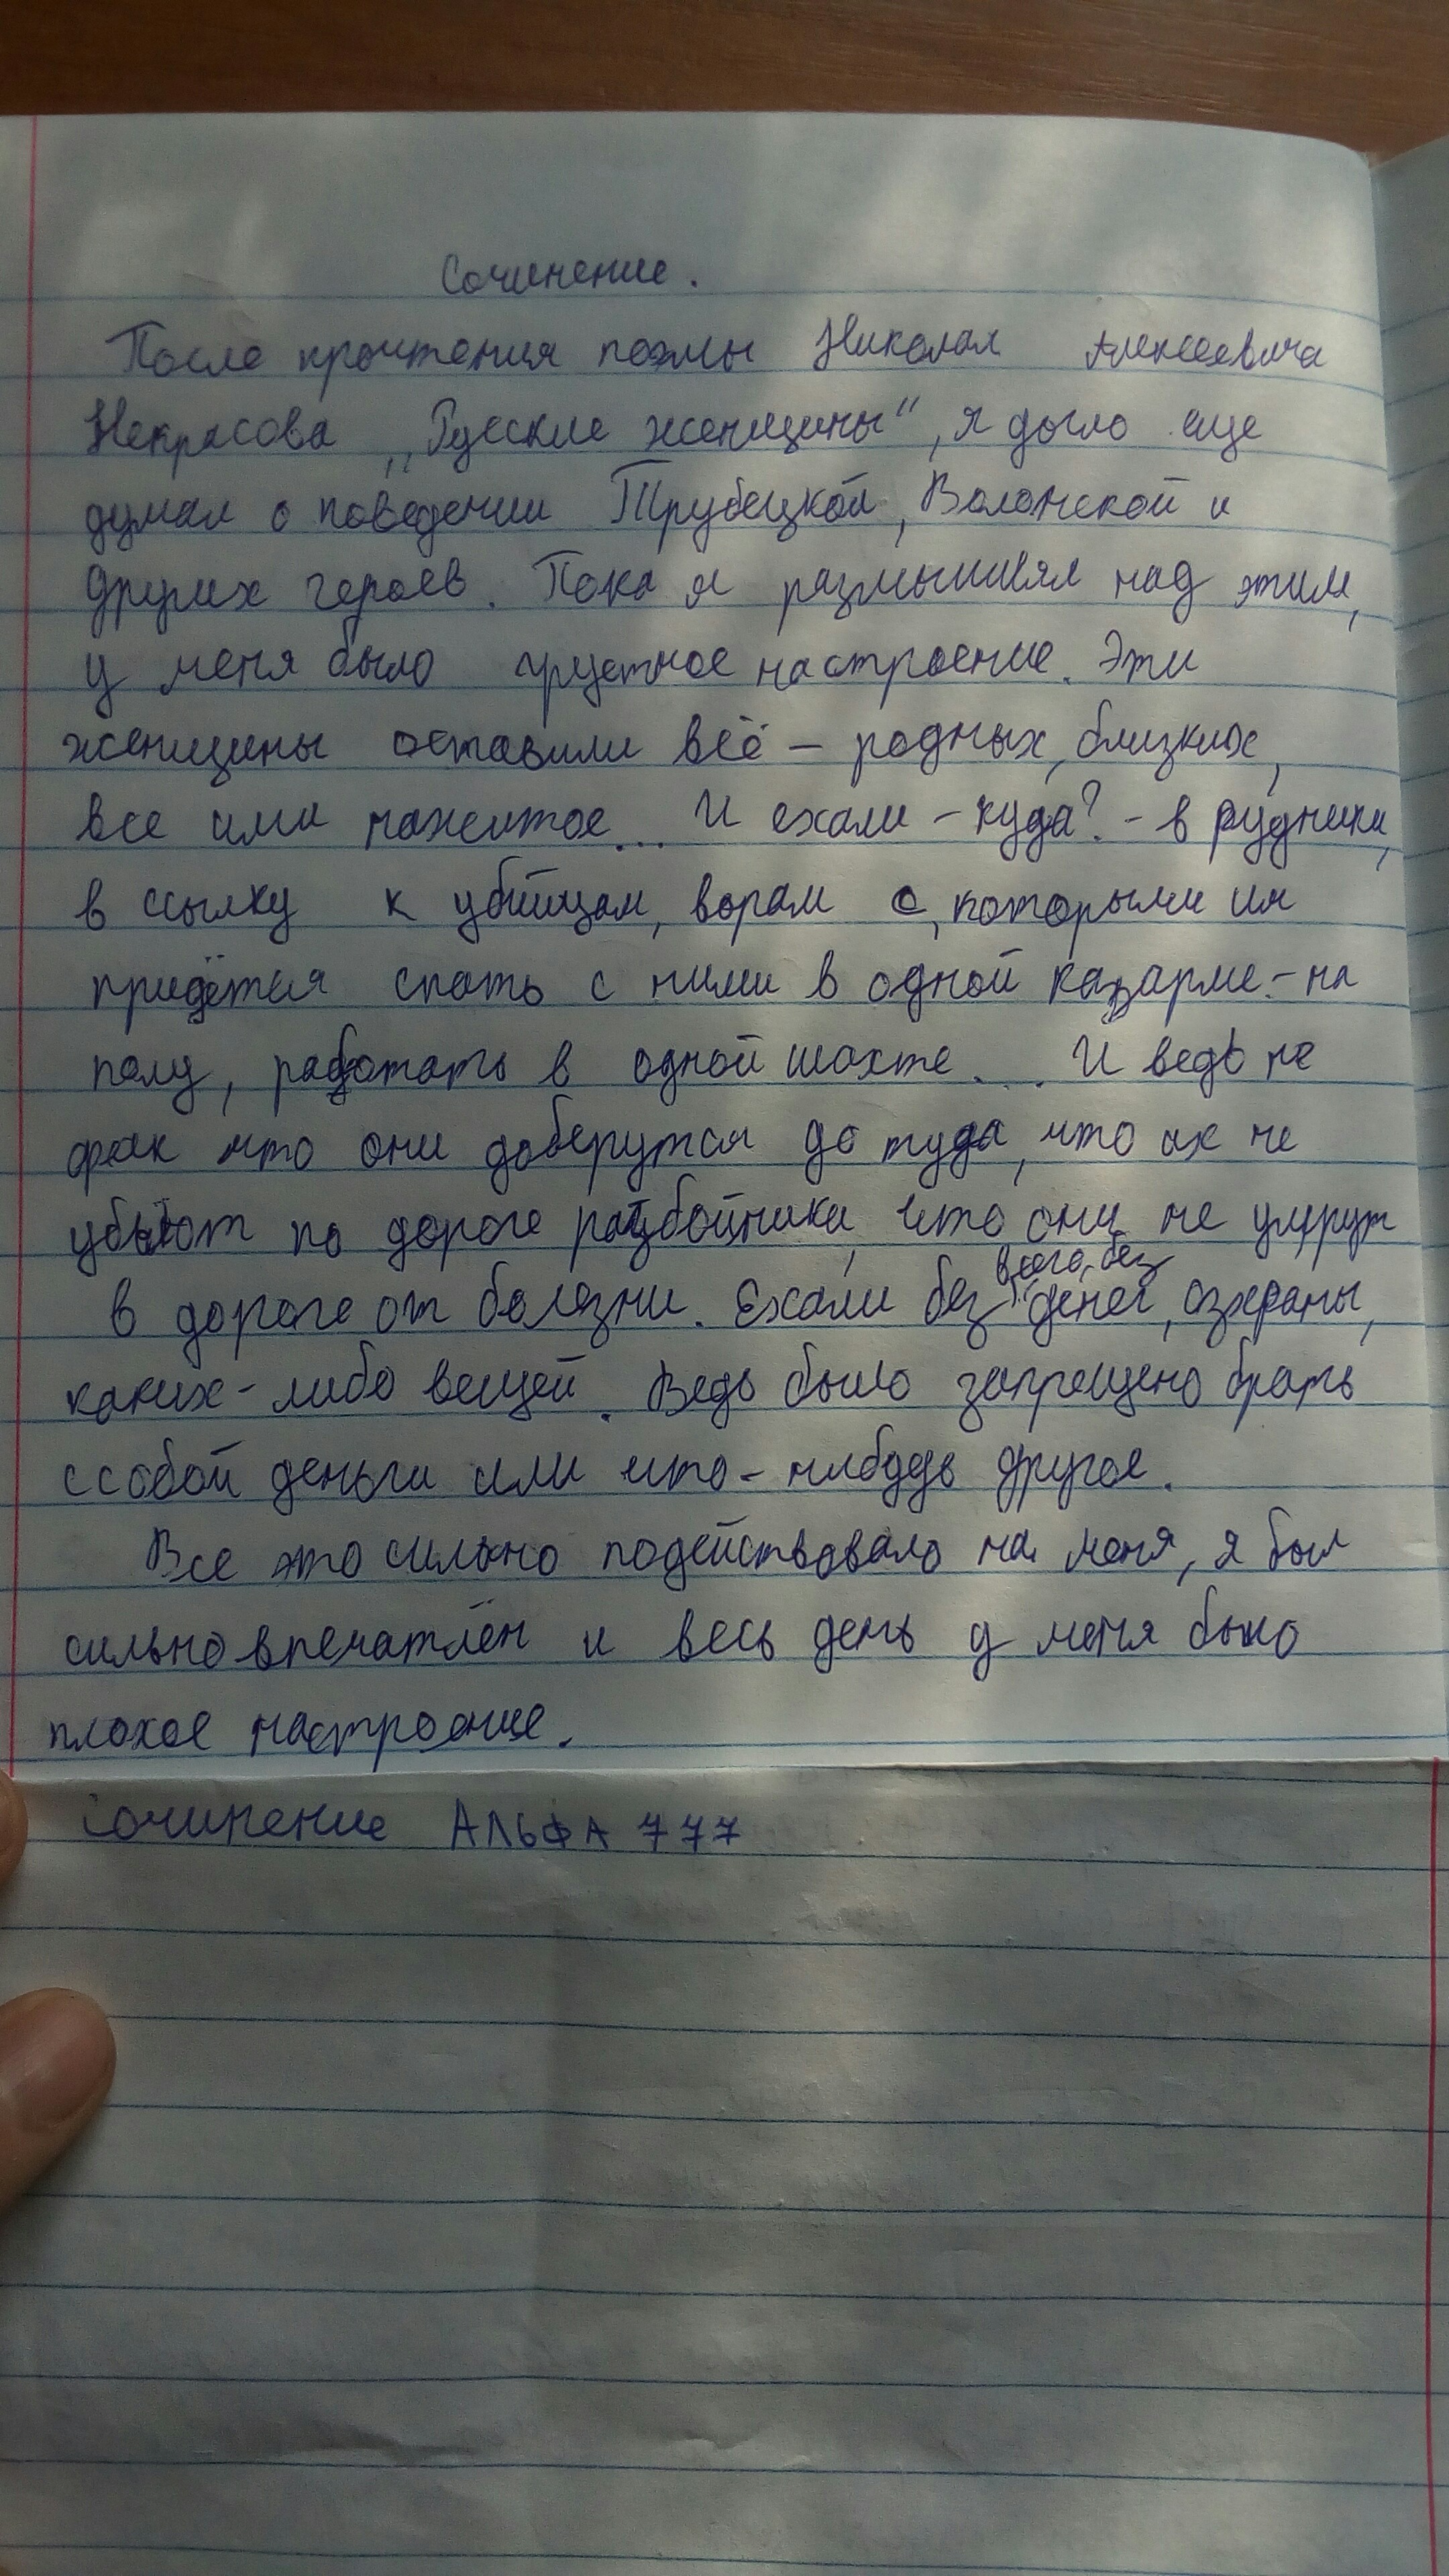 Сочинение.
После прочтения поэмы Николая Алексеевича
Некрасова „Русские женщины“, я догло еще
думал о поведении Трубецкой, Волонской и
других героев. Пока я размышлял над этим,
у меня было грустное настроение. Эти
женщины оставили всё – родных, близких,
все ими нажитое... И ехали – куда? – в рудники,
в ссылку к убийцам, ворам с, которыми им
придётся спать с ними в одной казарме – на
полу, работать в одной шахте... И ведь не
фак что они доберутся до туда, что их не
убьют по дороге разбойники, что они не умрут
в дороге от болезни. Ехали без всего, без денег, охраны,
каких-либо вещей. Ведь было запрещено брать
с собой деньги или что-нибудь другое.
Все это сильно подействовало на меня, я был
сильно впечатлён и весь день у меня было
плохое настроение.
Сочинение АЛЬФА 777